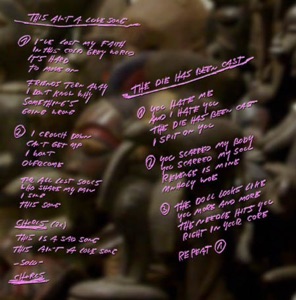 THIS AIN'T A LOVE SONG
① I'VE LOST MY FAITH
IN THIS COLD GREY WORLD
IT'S HARD
TO MOVE ON
FRIENDS TURN AWAY
I DON'T KNOW WHY
SOMETHING'S
GOING WRONG
② I CROUCH DOWN
CAN'T GET UP
I WON'T
OVERCOME
THE ALL LOST SOULS
WHO SHARE MY PAIN
I SING
THIS SONG
CHORUS (2x)
THIS IS A SAD SONG
THIS AIN'T A LOVE SONG
-SOLO-
CHORUS
THE DIE HAS BEEN CAST
① YOU HATE ME
AND I HATE YOU
THE DIE HAS BEEN CAST
I SPIT ON YOU
② YOU SCARRED MY BODY
YOU SCARRED MY SOUL
REVENGE IS MINE
UNHOLY WOE
③ THE DOLL LOOKS LIKE
YOU MORE AND MORE
THE NEEDLE HITS YOU
RIGHT IN YOUR CORE
REPEAT ①